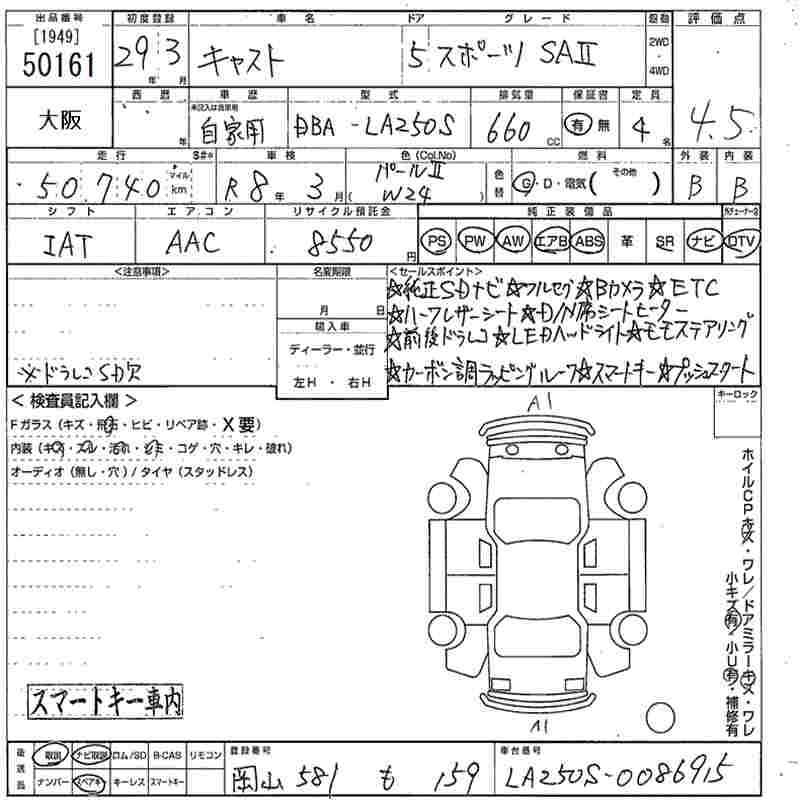 出品番号 初度登録 車名 ドア グレード 駆動 評価点
[1949] 50161 29年 3月 キャスト 5 スポーツ SAII 2WD 4WD 4.5
西暦 車歴 型式 排気量 保証書 定員
大阪 年 未記入は自家用 自家用 DBA-LA250S 660cc 有 無 4名
走行 S#* 車検 色(Col.No) 燃料 外装 内装
50,740 マイル km R8年 3月 パールII ( W24 ) 色替 G・D・電気( その他 ) B B
シフト エアコン リサイクル預託金 純正装備品
IAT AAC 8550円 PS PW AW エアB ABS 革 SR ナビ DTV
<注意事項> 名変期限 <セールスポイント>
☆純正SDナビ☆フルセグ☆Bカメラ☆ETC
月 日 ☆ハーフレザーシート☆D/N席シートヒーター
輸入車 ☆前後ドラレコ☆LEDヘッドライト☆モモステアリング
ディーラー・並行
※ドラレコSD欠 左H・右H ☆カーボン調ラッピングルーフ☆スマートキー☆プッシュスタート
<検査員記入欄> キーロック
A1
Fガラス(キズ・飛石・ヒビ・リペア跡・X要)
内装(キズ・スレ・汚れ・シミ・コゲ・穴・キレ・破れ)
オーディオ(無し・穴)/タイヤ(スタッドレス)
ホイルCPキズ・ワレ/ドアミラーキズ・ワレ
小キズ有・小U有・補修有
スマートキー車内
A1
後送品 取説 ナビ取説 ロム/SD B-CAS リモコン 登録番号 車台番号
ナンバー スペアキー キーレス スマートキー 岡山 581 も 159 LA250S-0086915